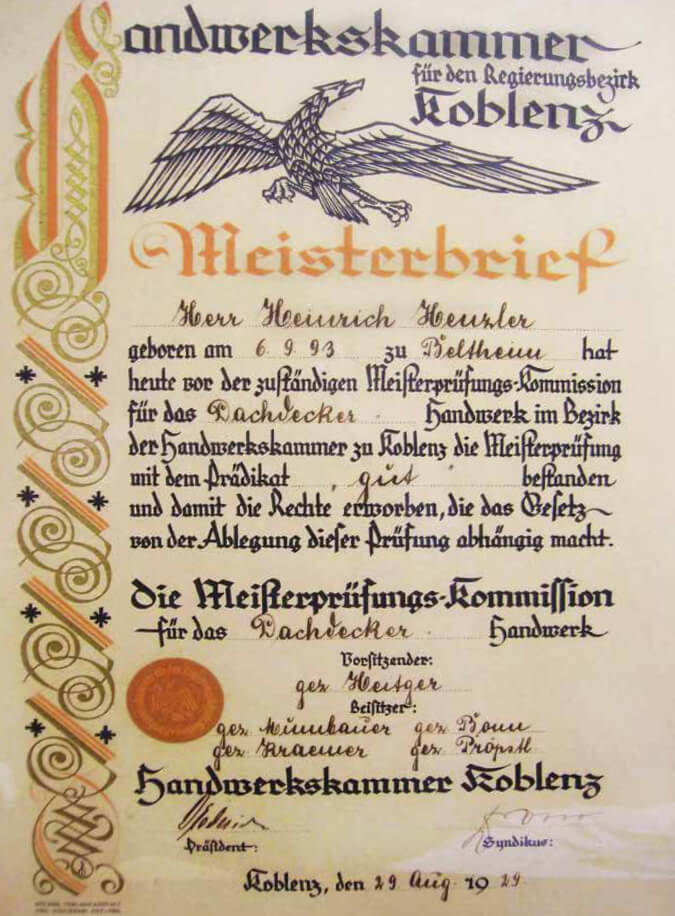 Handwerkskammer
für den Regierungsbezirk
Koblenz
Meisterbrief
Herr Heinrich Henzler
geboren am 6.9.93 zu Beltheim hat
heute vor der zuständigen Meisterprüfungs-Kommission
für das Dachdecker Handwerk im Bezirk
der Handwerkskammer zu Koblenz die Meisterprüfung
mit dem Prädikat „gut“ bestanden
und damit die Rechte erworben, die das Gesetz
von der Ablegung dieser Prüfung abhängig macht.
Die Meisterprüfungs-Kommission
für das Dachdecker Handwerk
Vorsitzender:
gez Heitger
Beisitzer:
gez Munbauer gez Bonn
gez Kraemer gez Pröpstl
Handwerkskammer Koblenz
Präsident: Syndikus:
Koblenz, den 29 Aug. 1929